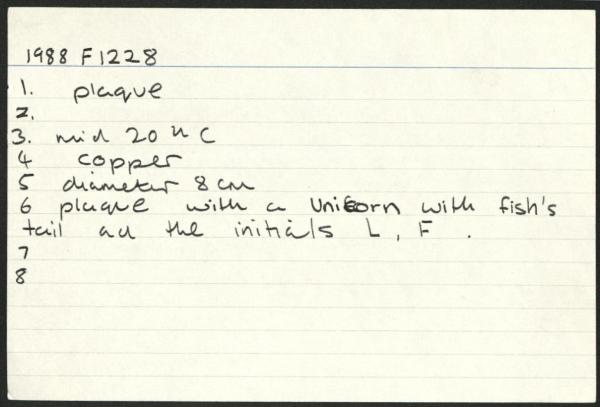 1988 F1228
1. plaque
2.
3. mid 20th C
4 copper
5 diameter 8cm
6 plaque with a Unicorn with fish's
tail ad the initials L, F.
7
8